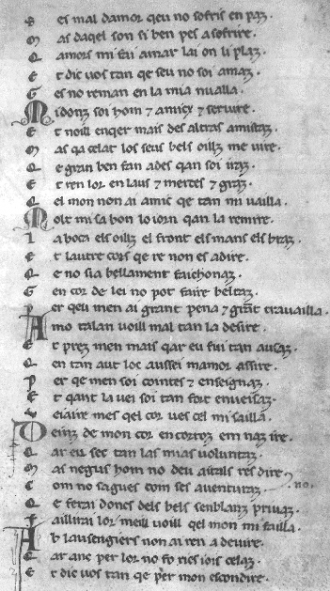 B es mal damor qeu no sofris en paz.
M as daqel son si ben pes a sofrire.
Q amors mi fai amar lai on li plaz.
E t dic vos tan qe seu no soi amaz.
G es no reman en la mia nualla.
Midonz soi hom et amics et servire.
E t noill enqer mais des altras amistaz.
M as qa celat los seus bels oillz me vire.
Q e gran ben fan ades qan soi iraz.
E t ren lor en laus et merces et graz.
Q el mon non ai amic qe tan mi vailla.
Molt mi sa bon lo iorn qan la remire.
L a boca els oillz el front els mans els braz.
E t lautre cors qe re non es a dire.
Q e no sia bellament faichonaz.
G en cor de lei no pot faire beltaz.
P er qeu men ai grant pena et grant travailla.
A mo talan voill mal tan la desire.
E t prez men mais qar eu fui tan ausaz.
Q en tan aut loc aussei mamor assire.
P er qe men soi cointes et enseignaz.
E t qant la vei soi tan fort enveisaz.
V eiaire mes qel cor ves cel mi sailla.
Deinz de mon cor en corroz em naz ire.
Q ar eu sec tan las mias voluntaz.
M as negus hom no deu aitals res dire.
C om no sagues com ses aventuraz. no.
Q e farai doncs dels bels senblanz privaz.
F aillirai lor meill voill qel mon mi failla.
A b lausengiers non ai ren a devire.
E ar anc per lor no fo rics iois celaz.
E t dic vos tan qe per mon escondire.